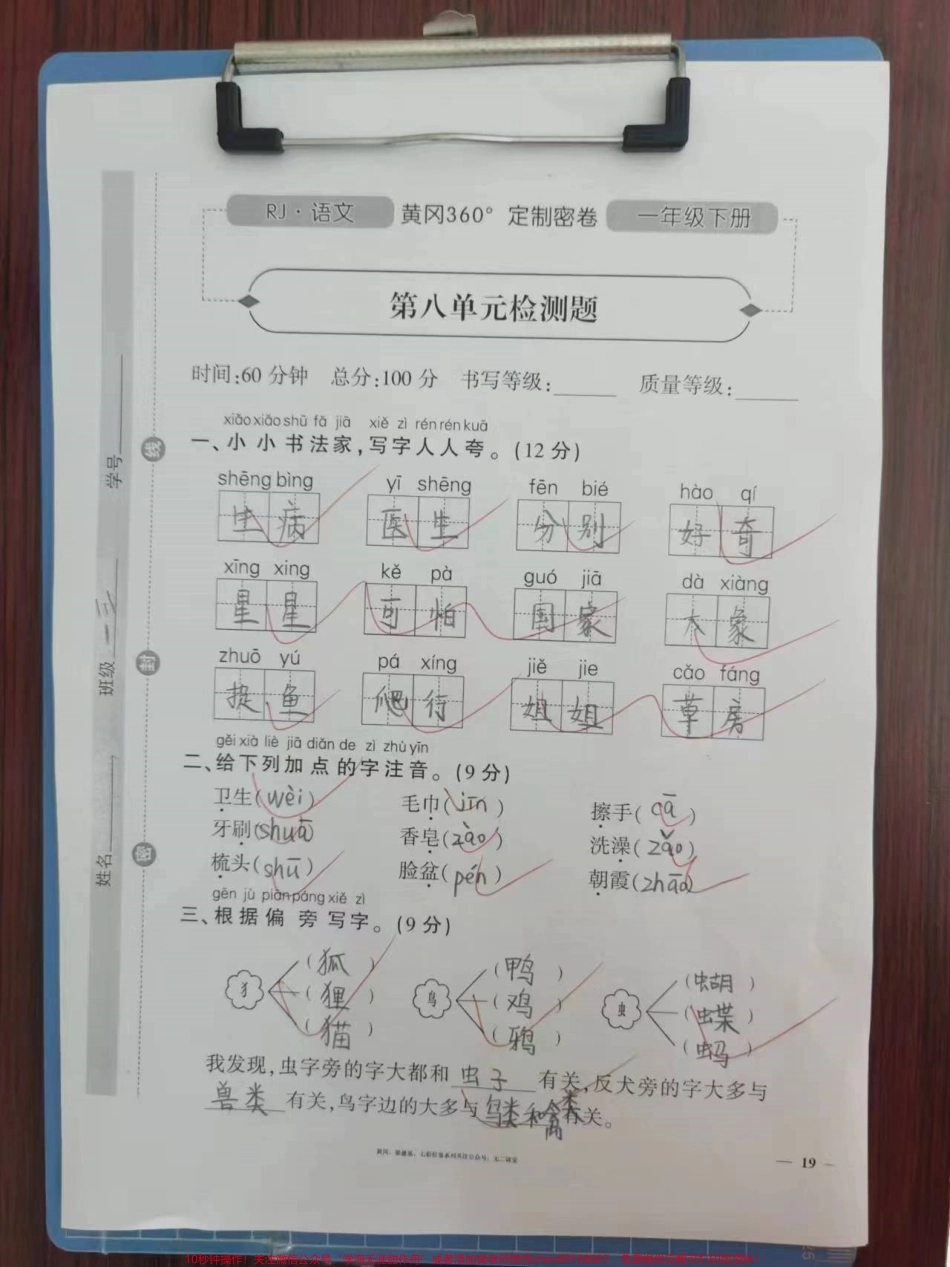 RJ·语文 黄冈360°定制密卷 一年级下册
第八单元检测题
时间:60分钟 总分:100分 书写等级:______ 质量等级:______
xiǎo xiǎo shū fǎ jiā xiě zì rén rén kuā
一、小小书法家,写字人人夸。(12分)
shēng bìng yī shēng fēn bié hào qí
生病 医生 分别 好奇
xīng xing kě pà guó jiā dà xiàng
星星 可怕 国家 大象
zhuō yú pá xíng jiě jie cǎo fáng
捉鱼 爬行 姐姐 草房
gěi xià liè jiā diǎn de zì zhù yīn
二、给下列加点的字注音。(9分)
卫生(wèi) 毛巾(jīn) 擦手(cā)
牙刷(shuā) 香皂(zào) 洗澡(zǎo)
梳头(shū) 脸盆(pén) 朝霞(zhāo)
gēn jù piān páng xiě zì
三、根据偏旁写字。(9分)
犭 (狐) (狸) (猫)
鸟 (鸭) (鸡) (鸦)
虫 (蝴) (蝶) (蚂)
我发现,虫字旁的字大都和 虫子 有关,反犬旁的字大多与
兽类 有关,鸟字边的大多与 鸟类和禽类有关。
— 19 —
学号
班级 一三
姓名
线
封
密